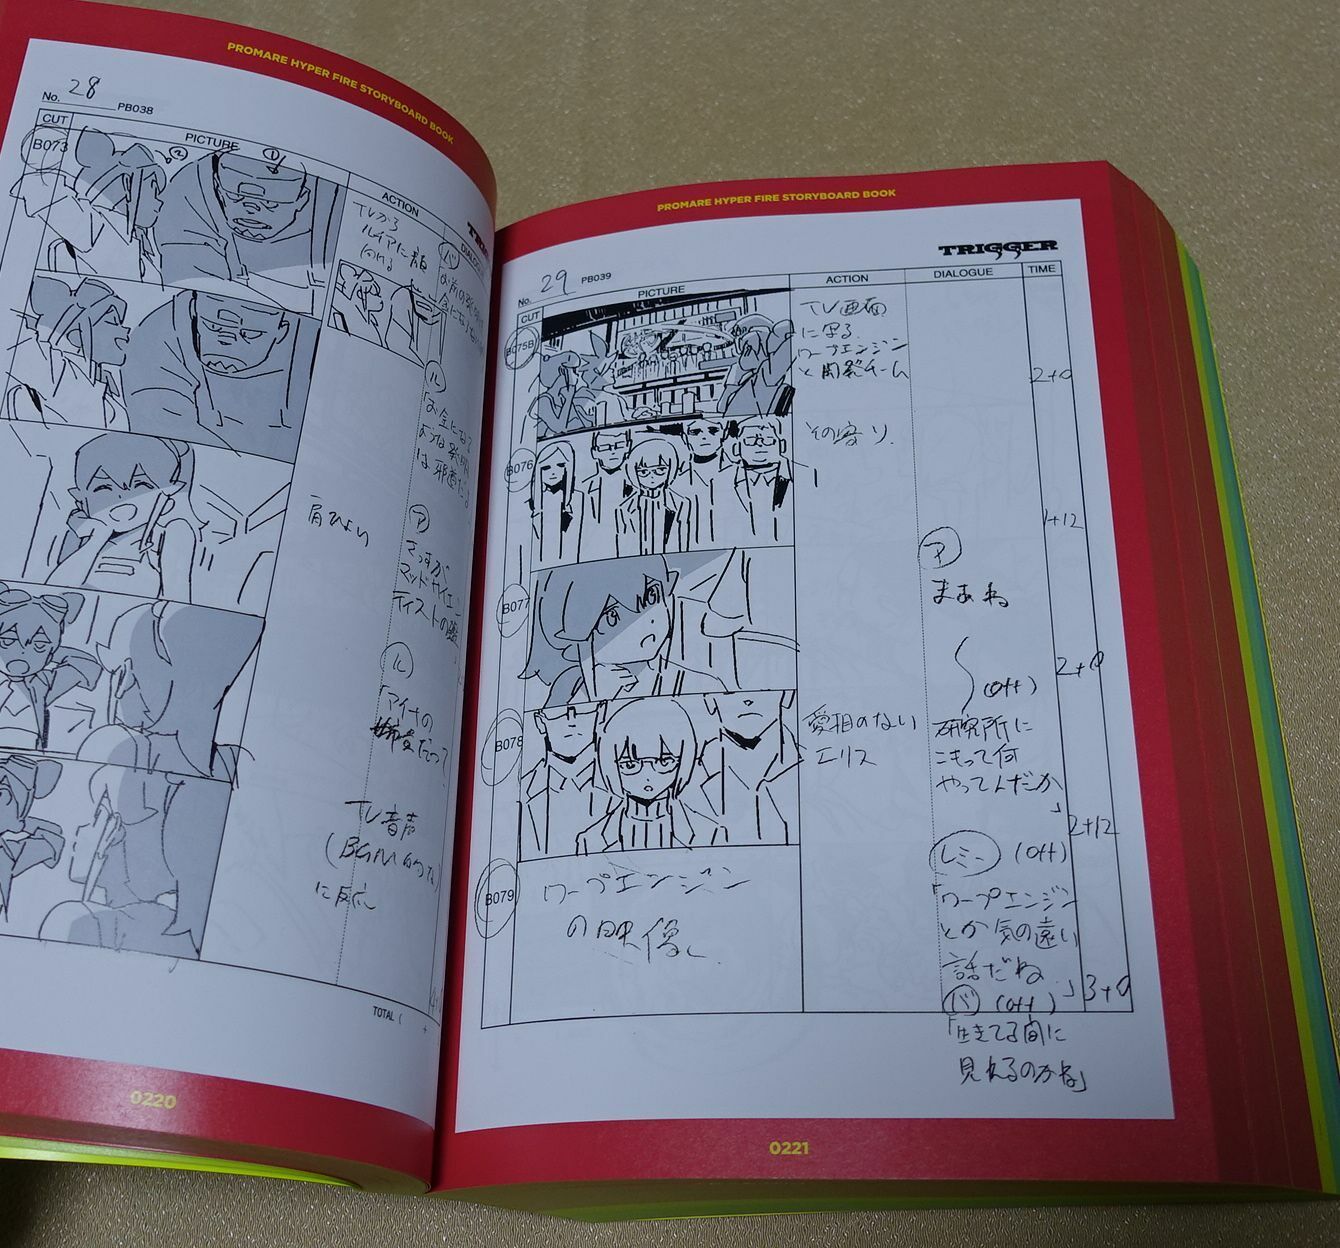 PROMARE HYPER FIRE STORYBOARD BOOK
No. 28 PB038
CUT PICTURE ACTION DIALOGUE
B073
② ①
TVから
ルイアに顔
向ける
バ
ル
「お金になる
は邪道だよ
肩ひょい
ア
さっすが
マッドサイエン
ティストの
ル
「アイナの
だって
TV音声
(BGM的な)
に反応
TOTAL ( +
0220
PROMARE HYPER FIRE STORYBOARD BOOK
TRIGGER
No. 29 PB039
CUT PICTURE ACTION DIALOGUE TIME
B075B
TV画面
に写る
ワープエンジン
と開発チーム
2+0
B076
その寄り
1+12
B077
ア
まあね
(off)
2+0
B078
愛想のない
エリス
研究所に
こもって何
やってんだか
」
2+12
B079
ワープエンジン
の映像
レミー (off)
「ワープエンジン
とか気の遠い
話だね」
3+0
バ (off)
「生きてる間に
見れるのかね」
0221